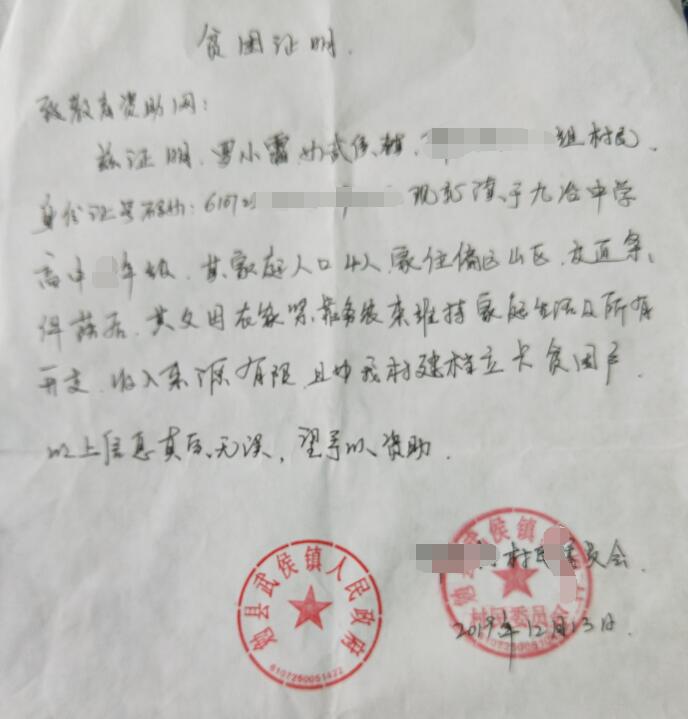 贫困证明.
致教育资助网:
兹证明,罗小雷 为武侯镇, 组村民.
身份证号码为: 61072 现就读于九冶中学
高中 年级.其家庭人口4人,家住偏远山区,交通条
件落后,其父因在家 靠务农来维持家庭生活及所有
开支,收入来源有限,且为我村建档立卡贫困户.
以上信息真实无误,望予以资助.
村民委员会.
2019年12月13日.
勉县武侯镇人民政府
6107250051422
勉县武侯镇
村民委员会